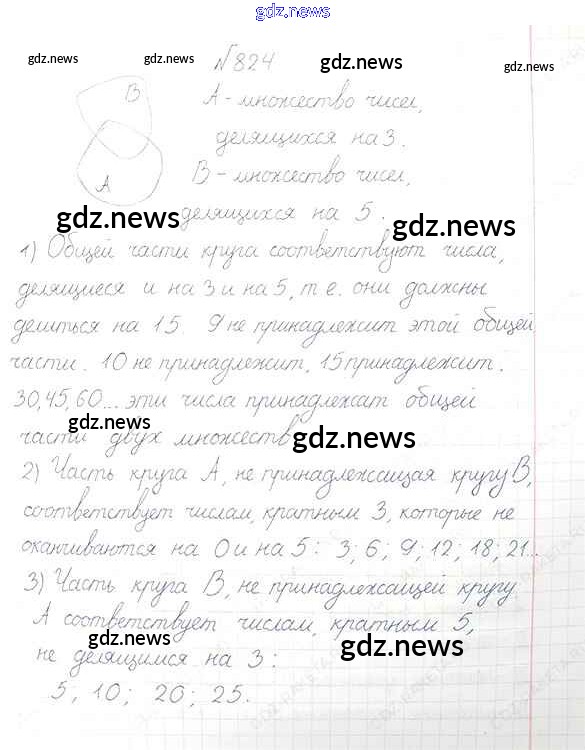 gdz.news
gdz.news
gdz.news
№ 824
gdz.news
gdz.news
B
A - множество чисел,
делящихся на 3.
A
B - множество чисел,
делящихся на 5.
gdz.news
gdz.news
1) Общей части круга соответствуют числа,
делящиеся и на 3 и на 5, т е. они должны
делиться на 15. 9 не принадлежит этой общей
части. 10 не принадлежит, 15 принадлежит.
30, 45, 60... эти числа принадлежат общей
gdz.news
части двух множеств
gdz.news
2) Часть круга А, не принадлежащая кругу В,
соответствует числам, кратным 3, которые не
оканчиваются на 0 и на 5: 3; 6; 9; 12; 18; 21...
3) Часть круга В, не принадлежащей кругу
А соответствует числам, кратным 5,
gdz.news
gdz.news
не делящимся на 3:
5, 10; 20; 25.